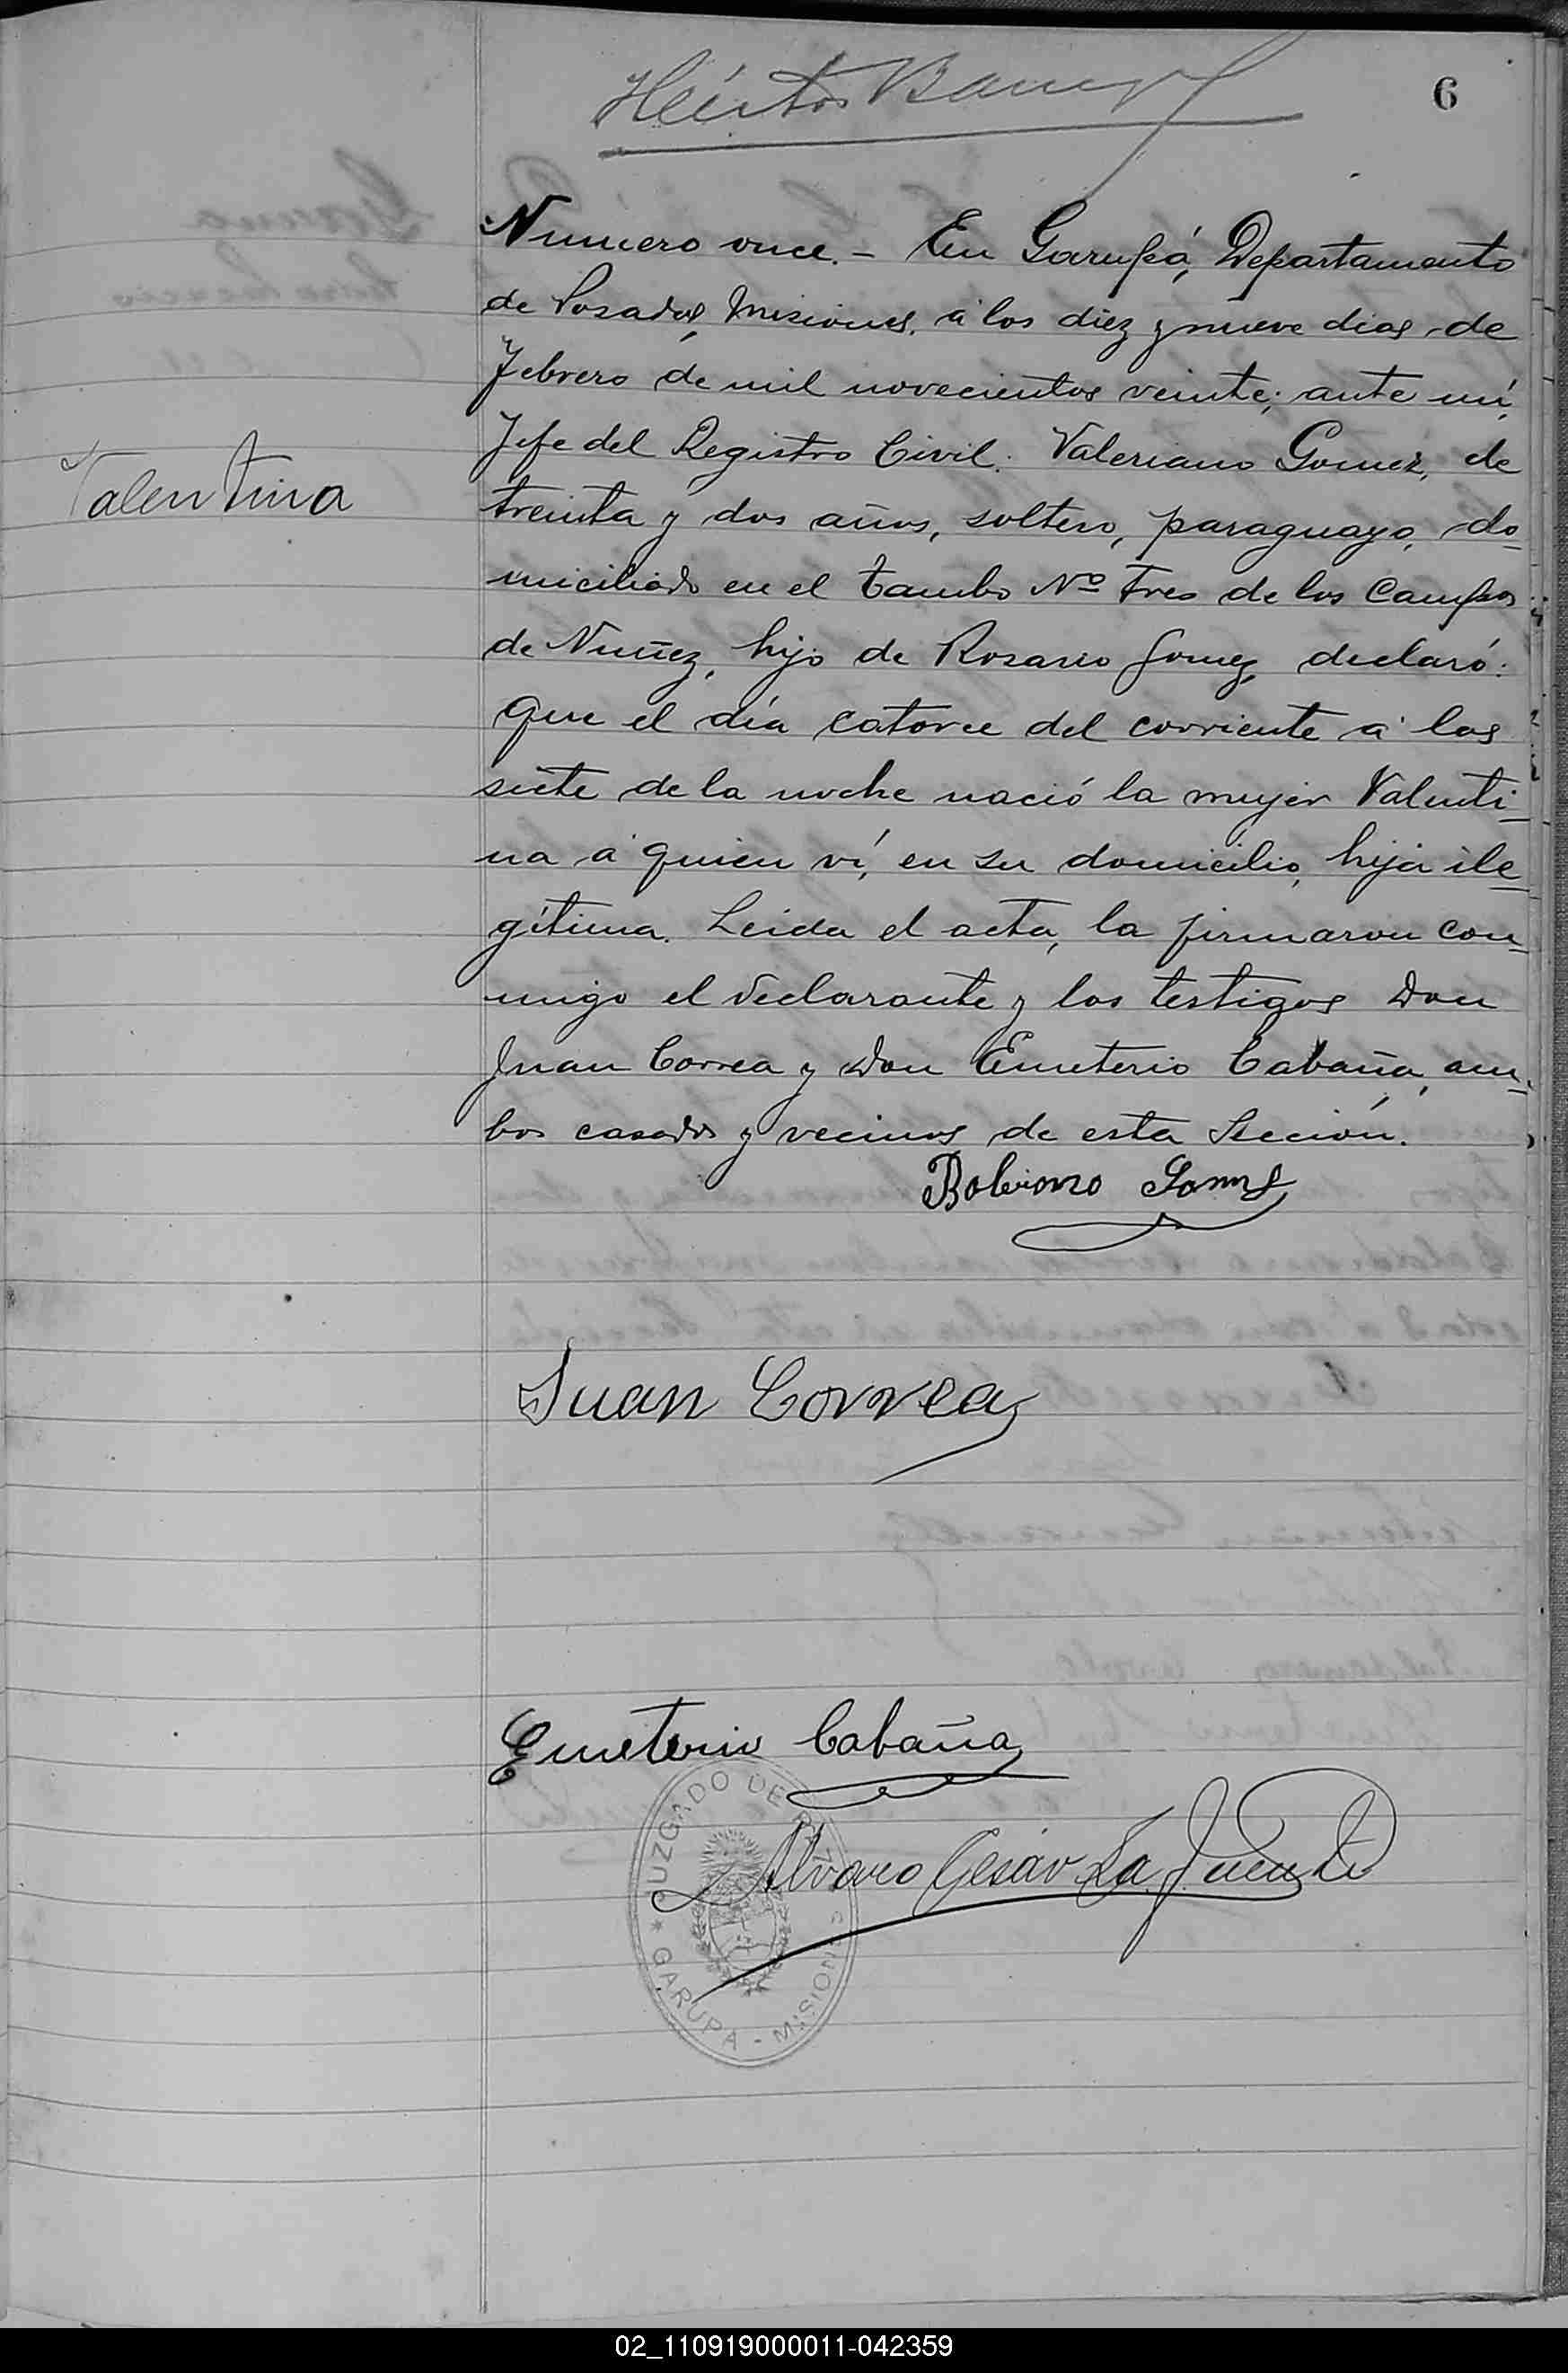 6
Numero once. - En Garupá, Departamento
de Posadas, Misiones, á los diez y nueve dias de
Febrero de mil novecientos veinte; ante mí,
Jefe del Registro Civil. Valeriano Gomez, de
Valentina
treinta y dos años, soltero, paraguayo, do-
miciliado en el tambo Nº tres de los Campos
de Nuñez, hijo de Rosario Gomez, declaró:
Que el día catorce del corriente á las
siete de la noche nació la mujer Valenti-
na á quien ví, en su domicilio, hija ile-
gítima. Leida el acta, la firmaron con-
migo el declarante y los testigos Don
Juan Correa y Don Emeterio Cabaña, am-
bos casados y vecinos de esta Sección.
Juan Correa
Emeterio Cabaña
JUZGADO DE PAZ
Alvaro Cesár La Fuente
* GARUPA - MISIONES
02_110919000011-042359